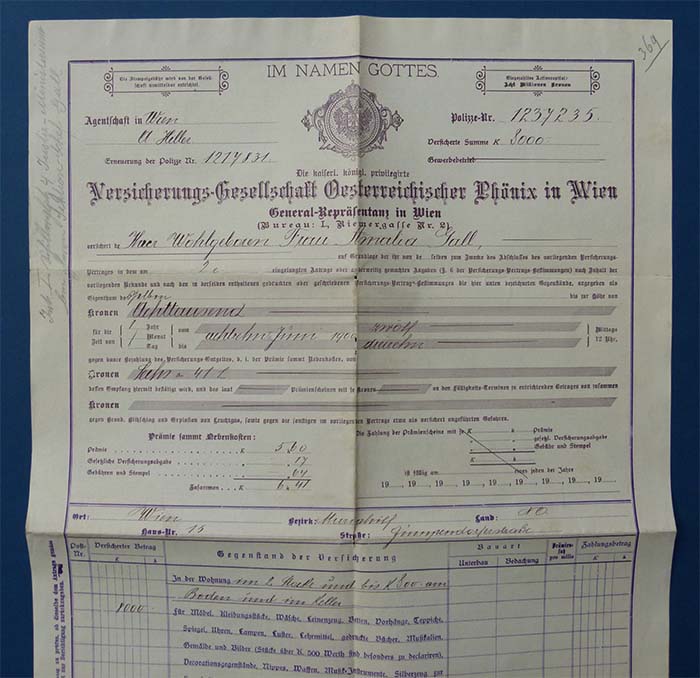 369
IM NAMEN GOTTES.
Die Stempelgebühr wird von der Gesell-
schaft unmittelbar entrichtet.
Eingezahltes Actiencapital:
Acht Millionen Kronen
Agentschaft in Wien
Heller
Erneuerung der Polizze Nr. 1217831
Polizze-Nr. 1237235.
Versicherte Summe K 8000.-
Gewerbebetrieb
Die kaiserl. königl. privilegirte
Versicherungs-Gesellschaft Oesterreichischer Phönix in Wien
General-Repräsentanz in Wien
(Bureau: I., Riemergasse Nr. 2)
versichert die Frau Amalia Gall,
auf Grundlage der von derselben zum Zwecke des Abschlusses des vorliegenden Versicherungs-
Vertrages in dem am eingelangten Antrage oder anderweitig gemachten Angaben (§. 6 der Versicherungs-Vertrags-Bestimmungen) nach Inhalt der
vorliegenden Urkunde und nach den in derselben enthaltenen gedruckten oder geschriebenen Versicherungs-Vertrags-Bestimmungen die hier unten bezeichneten Gegenstände, angegeben als
Eigenthum derselben bis zur Höhe von
Kronen Achttausend
für die Zeit von 1 Jahr Monat Tag vom bis achtzehn Juni zwölf Mittags 12 Uhr,
gegen baare Bezahlung des Versicherungs-Entgeltes, d. i. der Prämie sammt Nebenkosten, von
Kronen Sechs 41 h
dessen Empfang hiermit bestätigt wird, und des laut Prämienscheinen mit je Kronen an den Fälligkeits-Terminen zu entrichtenden Betrages von zusammen
Kronen
gegen Brand, Blitzschlag und Explosion von Leuchtgas, sowie gegen die sonstigen im vorliegenden Vertrage etwa als versichert angeführten Gefahren.
Prämie sammt Nebenkosten:
Prämie K 5.60
Gesetzliche Versicherungsabgabe .17
Gebühren und Stempel .64
Zusammen K 6.41
Die Zahlung der Prämienscheine mit je K Prämie
K gesetzl. Versicherungsabgabe
Gebühr und Stempel
K
ist fällig am eines jeden der Jahre
19 19 19 19 19 19 19
Ort: Wien Bezirk: Land: NÖ
Haus-Nr. 15 Straße: Gumpendorferstrasse
Post-Nr. Versicherter Betrag K Gegenstand der Versicherung Bauart Unterbau Bedachung Prämien-satz pro mille Zahlungsbetrag K
In der Wohnung im 2. Stock und bis K 800.- am
Boden und im Keller
8000
Für Möbel, Kleidungsstücke, Wäsche, Leinenzeug, Betten, Vorhänge, Teppiche,
Spiegel, Uhren, Lampen, Luster, Lehrmittel, gedruckte Bücher, Musikalien,
Gemälde und Bilder (Stücke über K. 500 Werth sind besonders zu declariren),
Decorationsgegenstände, Nippes, Waffen, Musik-Instrumente, Silberzeug zur